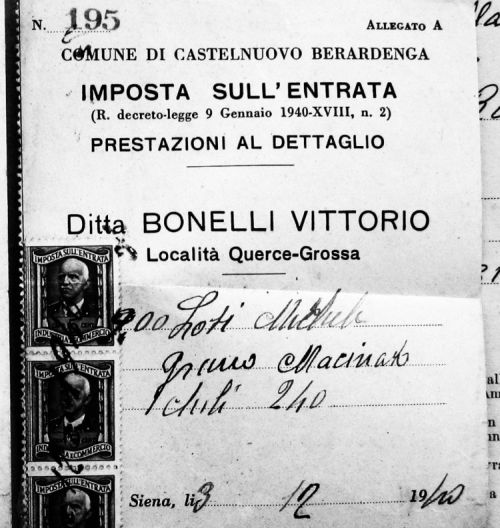 N. 195
ALLEGATO A
COMUNE DI CASTELNUOVO BERARDENGA
IMPOSTA SULL'ENTRATA
(R. decreto-legge 9 Gennaio 1940-XVIII, n. 2)
PRESTAZIONI AL DETTAGLIO
Ditta BONELLI VITTORIO
Località Querce-Grossa
IMPOSTA SULL'ENTRATA
INDUSTRIA E COMMERCIO
Losi Michele
grano Macinato
Chili 240
IMPOSTA SULL'ENTRATA
INDUSTRIA E COMMERCIO
IMPOSTA SULL'ENTRATA
Siena, li 3 12 1940